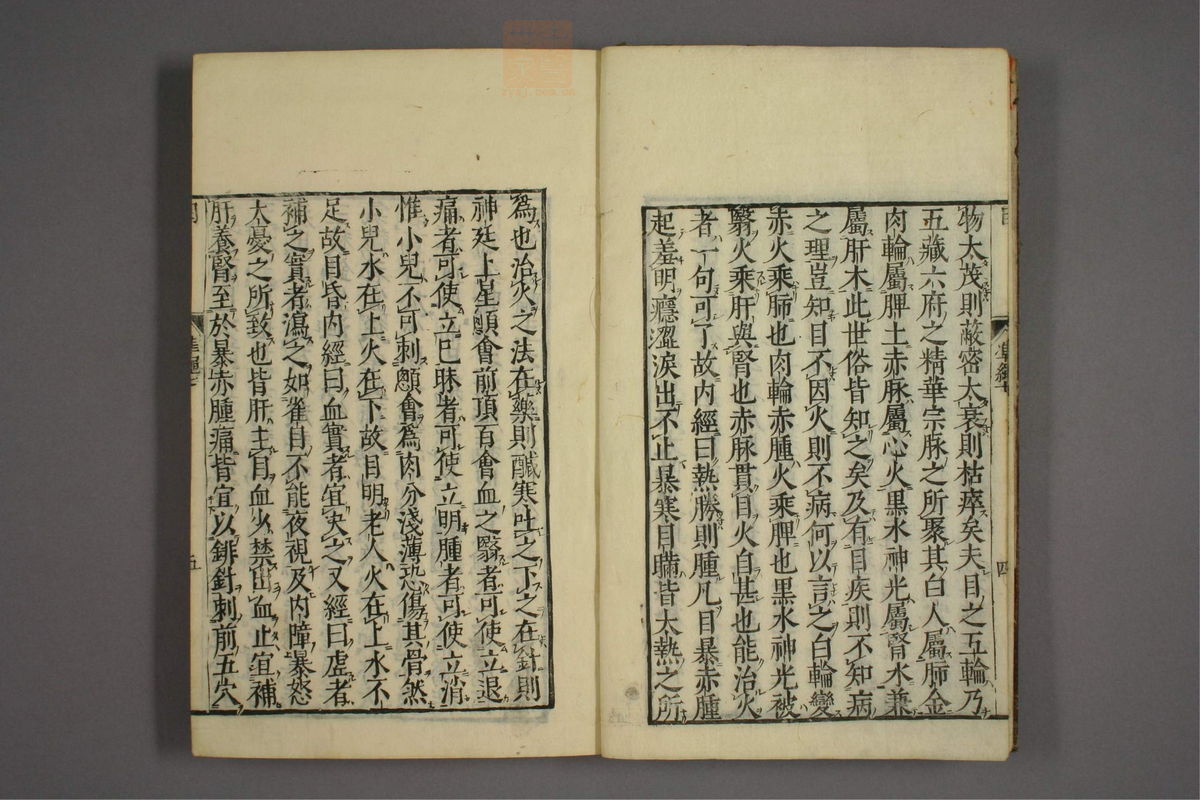 物太茂則蔽密太衰則枯瘁矣夫目之五輪乃
五藏六府之精華宗脉之所聚其白人屬肺金
肉輪屬脾土赤脉屬心火黒水神光屬腎水兼
屬肝木此世俗皆知之矣及有目疾則不知病
之理豈知目不因火則不病何以言之白輪變
赤火乘肺也肉輪赤腫火乘脾也黒水神光被
翳火乘肝與腎也赤脉貫目火自甚也能治火
者一句可了故内經曰熱勝則腫凡目暴赤腫
起羞明癮澀淚出不止暴寒目瞞皆大熱之所
四
為也治火之法在藥則鹹寒吐之下之在針則
神廷上星顖會前頂百會血之翳者可使立退
痛者可使立已昧者可使立明腫者可使立消
惟小兒不可刺顖會為肉分淺薄恐傷其骨然
小兒水在上火在下故目明老人火在上水不
足故目昏内經曰血實者宜決之又經曰虚者
補之實者瀉之如雀目不能夜視及内障暴怒
太憂之所致也皆肝主目血少禁出血止宜補
肝養腎至於暴赤腫痛皆宜以鋒針刺前五穴
五